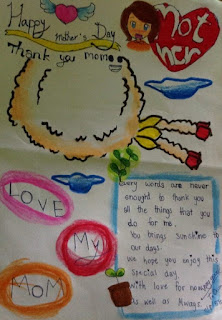 Happy
Mother's Day
Thank you mom
Mot
her
LOVE
My
MOM
Every words are never
enought to thank you
all the things that you
do for me.
You brings sunshine to
our days.
We hope you enjoy this
special day
With love for now
as well as Always.